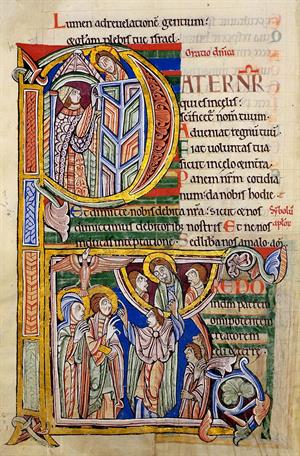 Lumen ad revelationem gentium:
& gloriam plebis tue israel.
Oratio dnica
PATER NR
qui es in celis:
scificet nom tuum.
Adveniat regnu tuu
fiat voluntas tua
sicut in celo & in tra.
Panem nrm cotidia
num da nobis hodie.
Et dimitte nobis debita nra: sicut & nos
dimittimus debitoribus nostris. Et ne nos
inducas in temptatione. Sed libera nos a malo.
aplor
CREDO
in dm patrem
omipotentem
creatorem
celi & terre